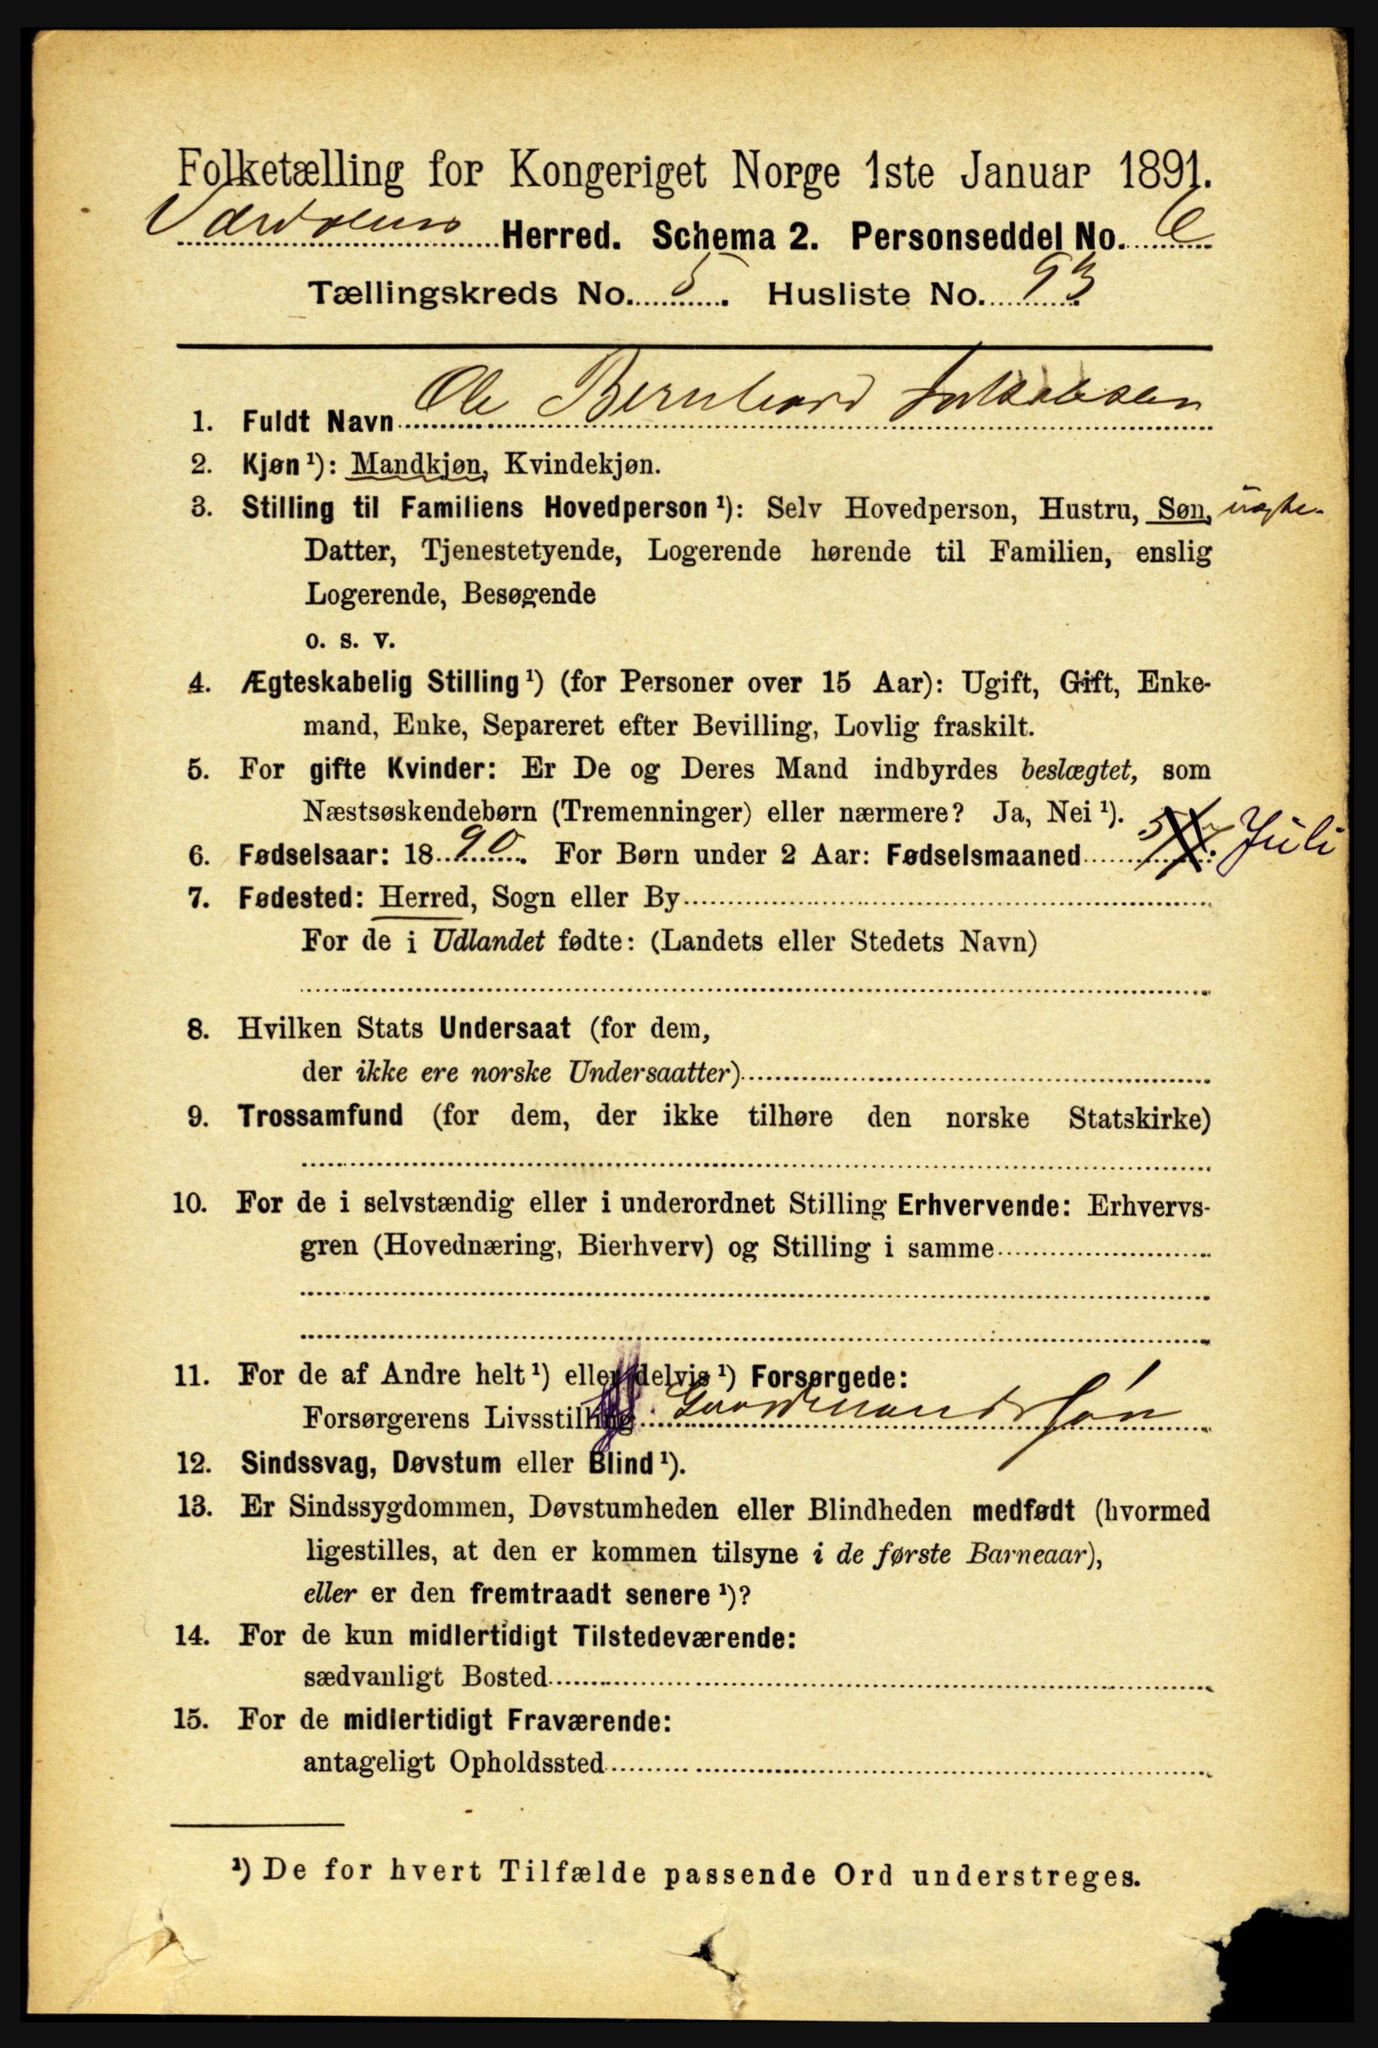 Folketælling for Kongeriget Norge 1ste Januar 1891.
Værdalens Herred. Schema 2. Personseddel No. 6
Tællingskreds No. 5. Husliste No. 93
1. Fuldt Navn Ole Bernhard Jakobsen
2. Kjøn ¹): Mandkjøn, Kvindekjøn.
3. Stilling til Familiens Hovedperson ¹): Selv Hovedperson, Hustru, Søn, uægte
Datter, Tjenestetyende, Logerende hørende til Familien, enslig
Logerende, Besøgende
o. s. v.
4. Ægteskabelig Stilling ¹) (for Personer over 15 Aar): Ugift, Gift, Enke-
mand, Enke, Separeret efter Bevilling, Lovlig fraskilt.
5. For gifte Kvinder: Er De og Deres Mand indbyrdes beslægtet, som
Næstsøskendebørn (Tremenninger) eller nærmere? Ja, Nei ¹).
6. Fødselsaar: 1890. For Børn under 2 Aar: Fødselsmaaned 5/7 Juli
7. Fødested: Herred, Sogn eller By
For de i Udlandet fødte: (Landets eller Stedets Navn)
8. Hvilken Stats Undersaat (for dem,
der ikke ere norske Undersaatter)
9. Trossamfund (for dem, der ikke tilhøre den norske Statskirke)
10. For de i selvstændig eller i underordnet Stilling Erhvervende: Erhvervs-
gren (Hovednæring, Bierhverv) og Stilling i samme
11. For de af Andre helt ¹) eller delvis ¹) Forsørgede:
Forsørgerens Livsstilling: Gaardmandssøn
12. Sindssvag, Døvstum eller Blind ¹).
13. Er Sindssygdommen, Døvstumheden eller Blindheden medfødt (hvormed
ligestilles, at den er kommen tilsyne i de første Barneaar),
eller er den fremtraadt senere ¹)?
14. For de kun midlertidigt Tilstedeværende:
sædvanligt Bosted
15. For de midlertidigt Fraværende:
antageligt Opholdssted
¹) De for hvert Tilfælde passende Ord understreges.